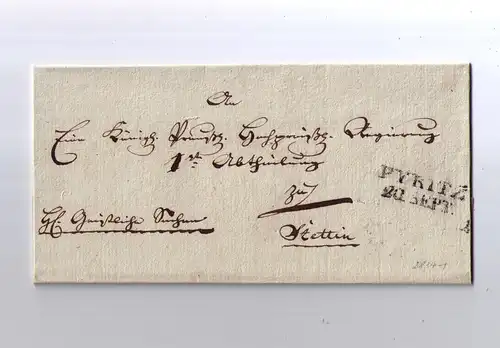 An
Eine Königl. Preuß. Hochpreißl. Regierung
1ste Abtheilung
zu
Stettin
Geistliche Sachen
PYRITZ
20 SEPT.